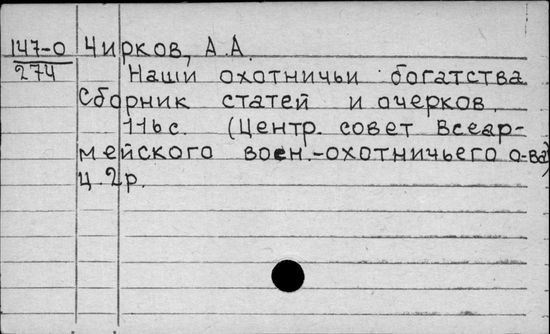 147-0 Чирков, А.А.
274
Наши охотничьи богатства
Сборник статей и очерков.
116с. (Центр. совет Всеар-
мейского воен.-охотничьего о-ва)
Ц. 2р.